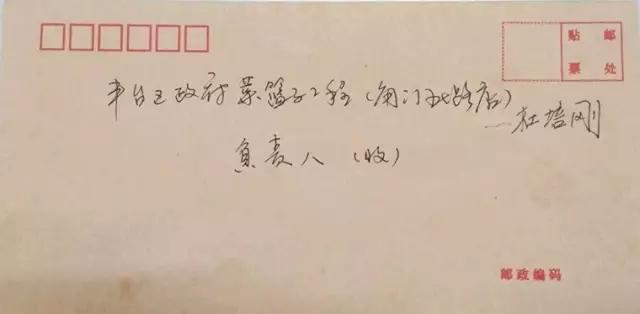 贴 邮
票 处
丰台区政府菜篮子工程（角门北路店）
—杜培刚
负责人（收）
邮政编码